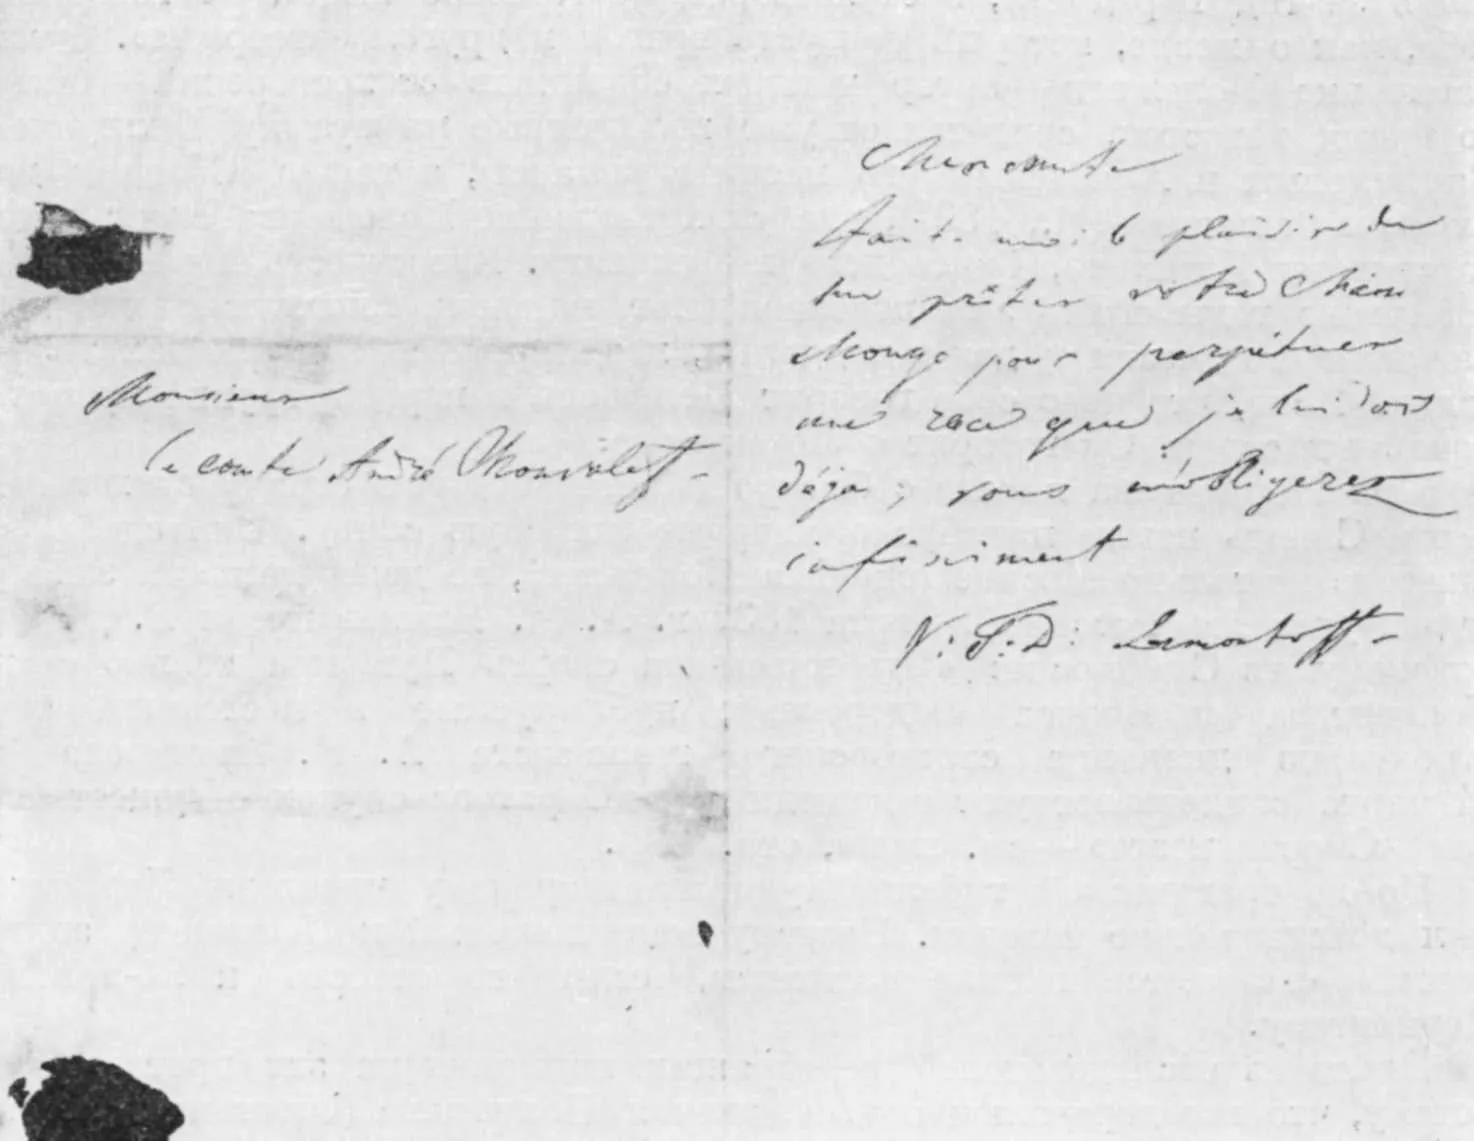 Monsieur
le comte André Chouvaloff -
Cher comte
Faite moi le plaisir de
me prêter votre chien
Mongo pour perpétuer
une race que je lui dois
déja ; vous m'obligerez
infiniment
V: T: D: Lermontoff -